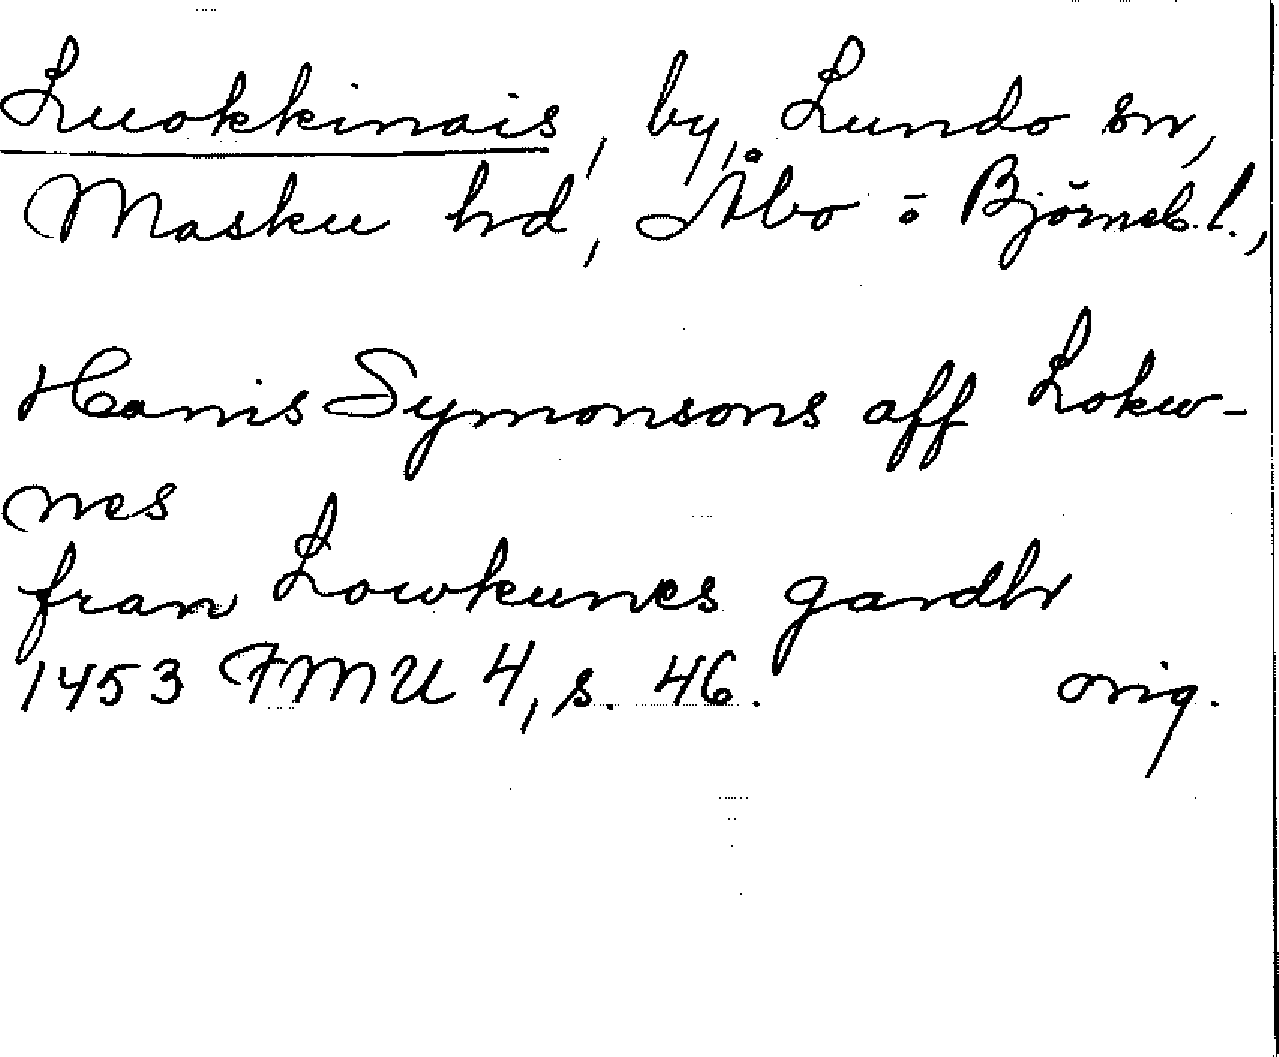 Luokkinais, by, Lundo sn,
Masku hd, Åbo o Björneb. l.,
Hanis Symonsons aff Lokw-
nes
fran Lowkunes gardh
1453 FMU 4, s. 46. orig.